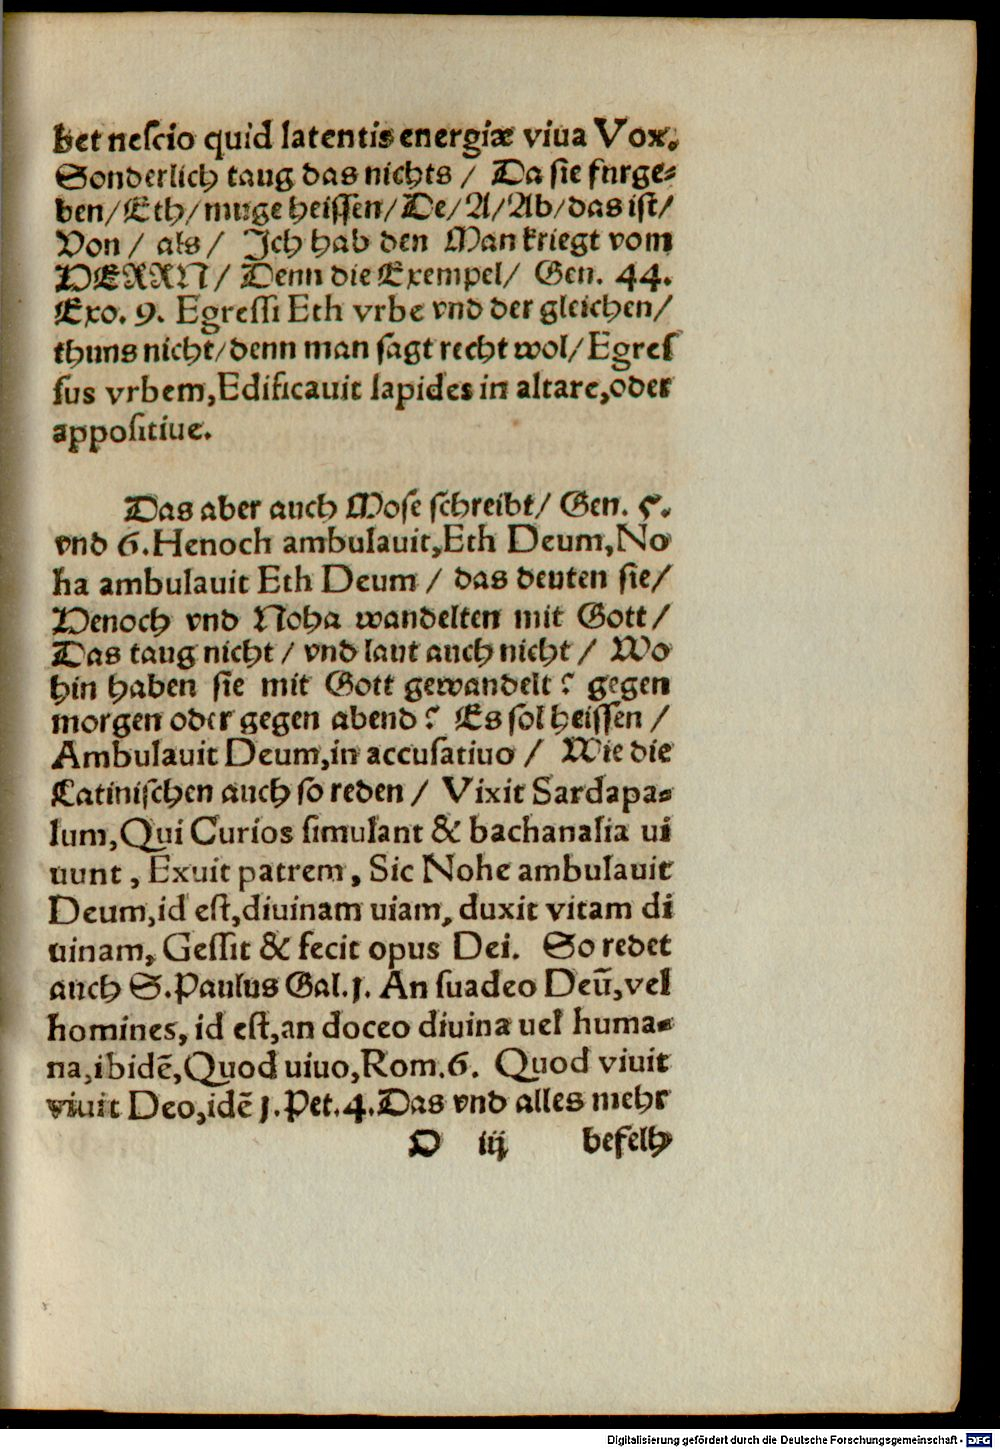 bet nescio quid latentis energiæ viua Vox.
Sonderlich taug das nichts / Da sie furge-
ben/Eth/muge heissen/De/A/Ab/das ist/
Von / als / Ich hab den Man kriegt vom
HERRN / Denn die Exempel/ Gen. 44.
Exo. 9. Egressi Eth vrbe vnd der gleichen/
thuns nicht/denn man sagt recht wol/Egres
sus vrbem,Edificauit lapides in altare,oder
appositiue.
Das aber auch Mose schreibt/ Gen. 5.
vnd 6.Henoch ambulauit,Eth Deum,No
ha ambulauit Eth Deum / das deuten sie/
Henoch vnd Noha wandelten mit Gott/
Das taug nicht / vnd laut auch nicht / Wo
hin haben sie mit Gott gewandelt? gegen
morgen oder gegen abend? Es sol heissen /
Ambulauit Deum,in accusatiuo / Wie die
Latinischen auch so reden / Vixit Sardapa-
lum,Qui Curios simulant & bachanalia ui
uunt, Exuit patrem, Sic Nohe ambulauit
Deum,id est,diuinam uiam, duxit vitam di
uinam, Gessit & fecit opus Dei. So redet
auch S.Paulus Gal.1. An suadeo Deū,vel
homines, id est,an doceo diuina uel huma-
na,ibidē,Quod uiuo,Rom.6. Quod viuit
viuit Deo,idē 1.Pet.4.Das vnd alles mehr
D iij befelh
Digitalisierung gefördert durch die Deutsche Forschungsgemeinschaft - DFG